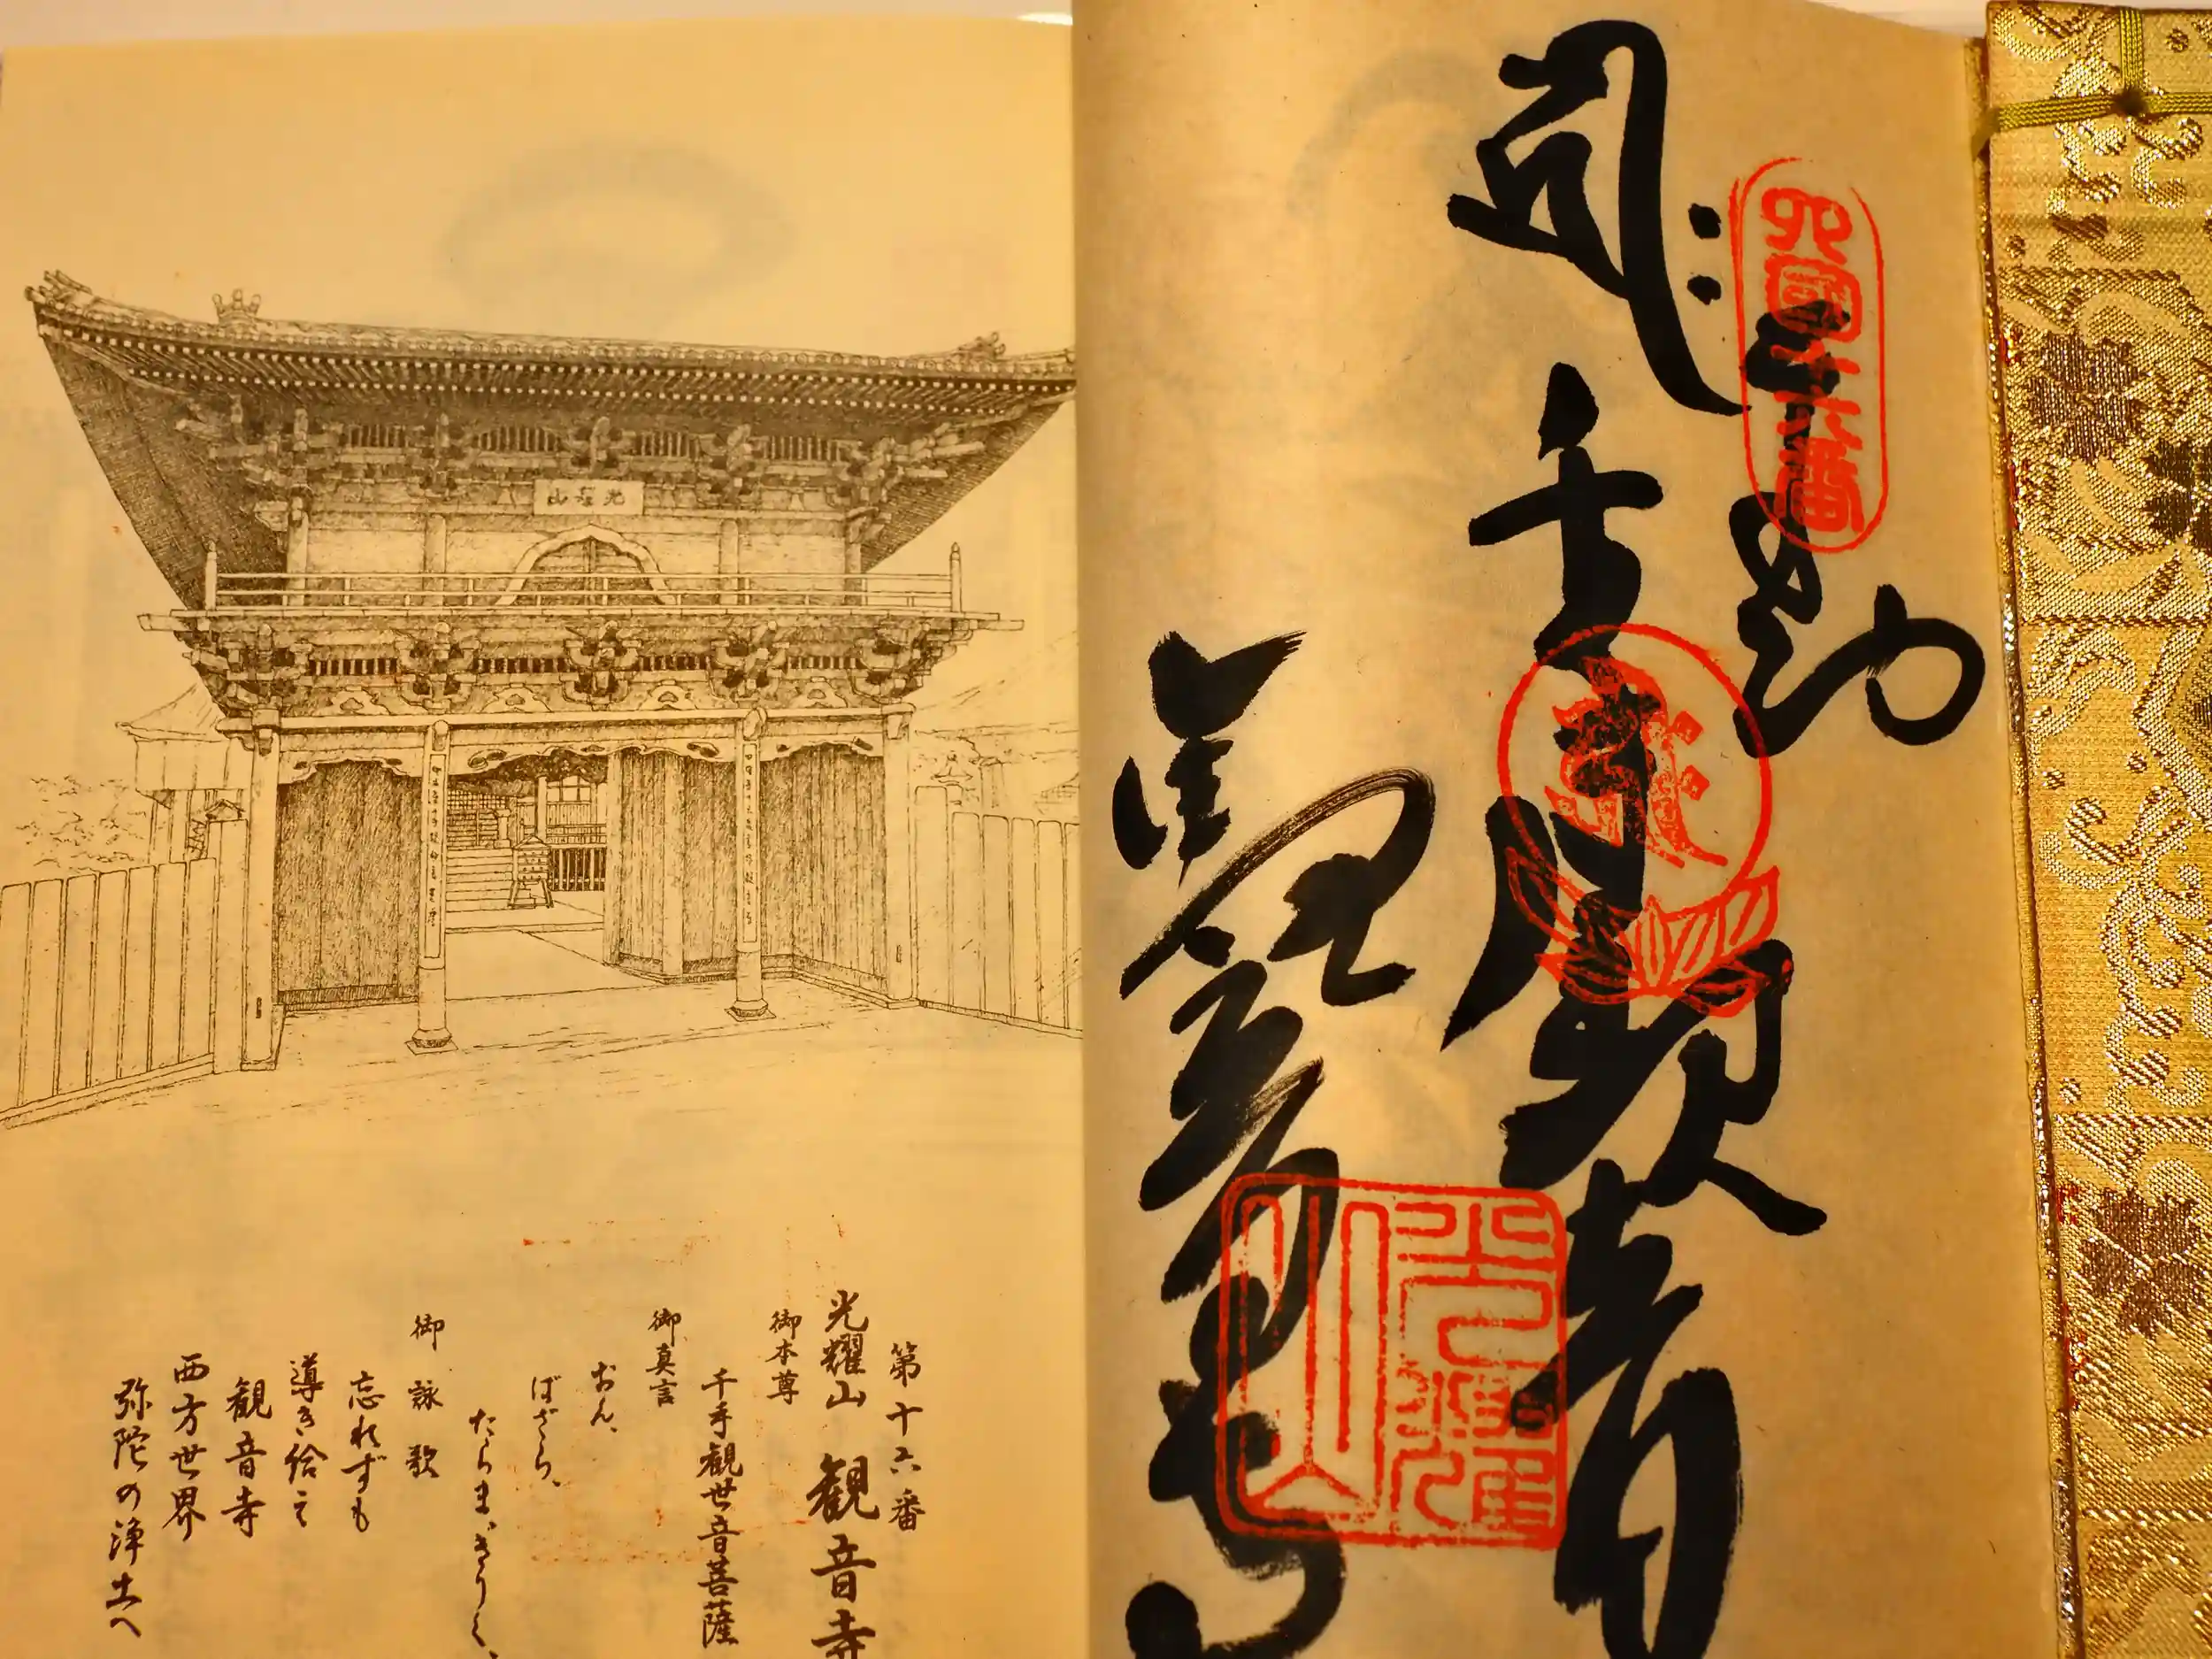 四國十六番
千手観音
観音寺
光耀山
光耀山
第十六番
光耀山 観音寺
御本尊
千手観世音菩薩
御真言
おん、
ばざら、
たらまぎりく、
御詠歌
忘れずも
導き給え
観音寺
西方世界
弥陀の浄土へ